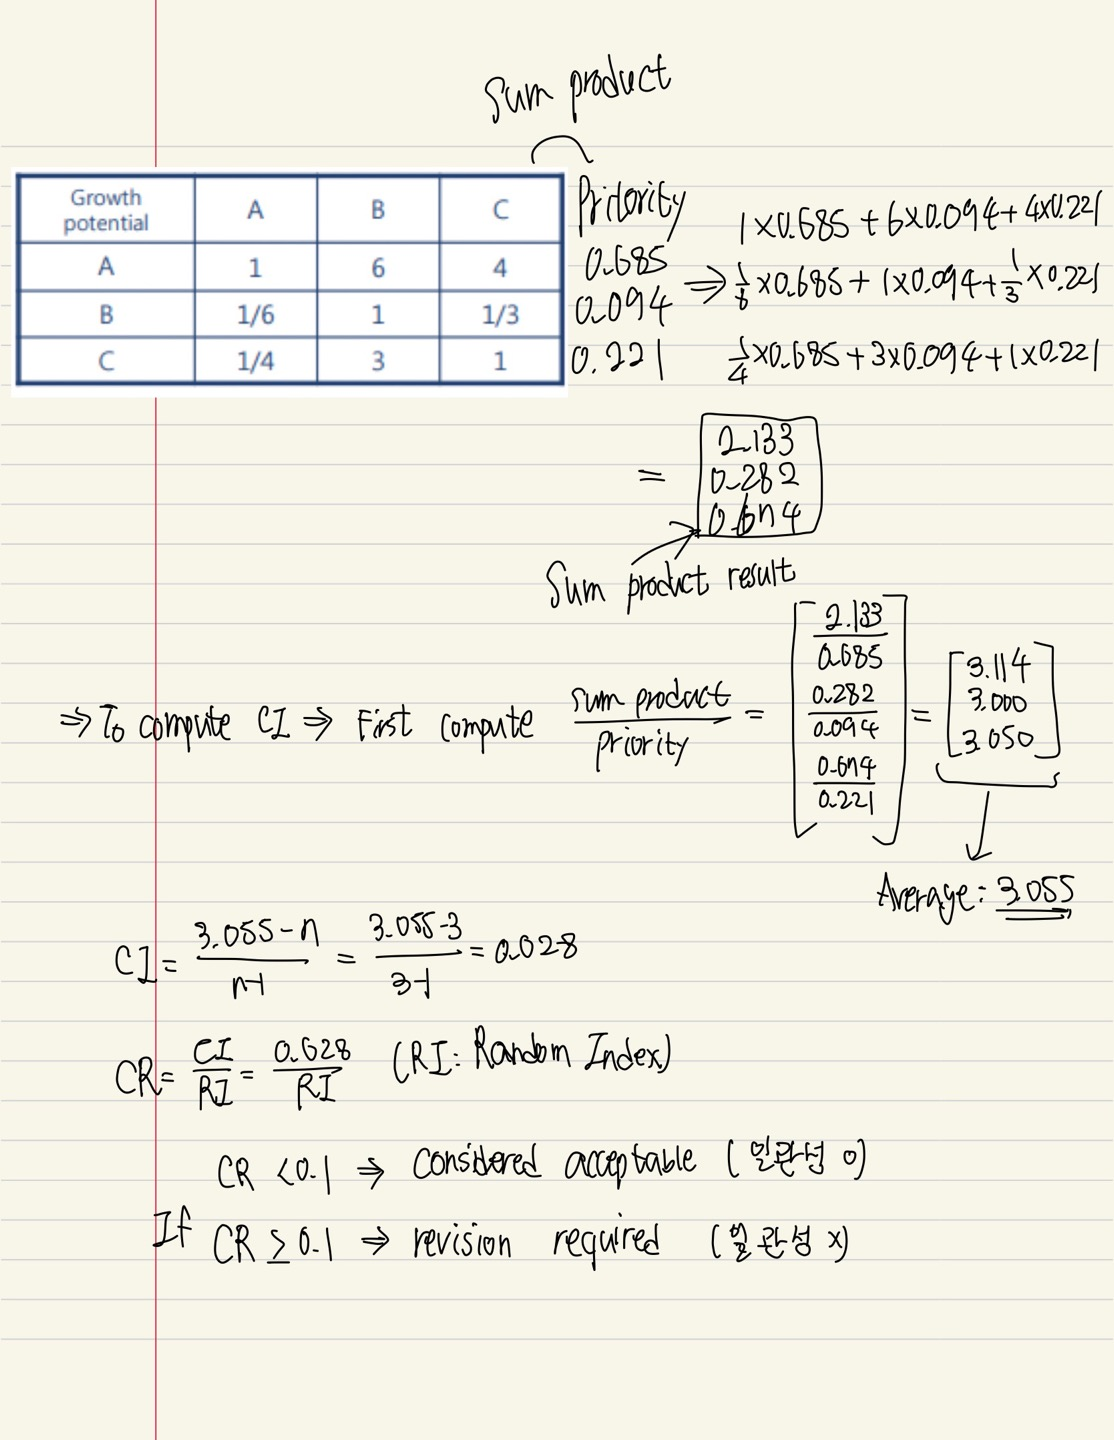 Sum product
Growth potential A B C
A 1 6 4
B 1/6 1 1/3
C 1/4 3 1
Pritority
0.685
0.094
0.221
1×0.685 + 6×0.094 + 4×0.221
⇒ 1/6×0.685 + 1×0.094 + 1/3×0.221
1/4×0.685 + 3×0.094 + 1×0.221
=
2.133
0.282
0.674
Sum product result
⇒ To compute CI ⇒ First compute sum product/priority = [2.133/0.685 0.282/0.094 0.674/0.221] = [3.114 3.000 3.050]
Average: 3.055
CI = 3.055-n/n-1 = 3.055-3/3-1 = 0.028
CR = CI/RI = 0.028/RI (RI: Random Index)
CR < 0.1 ⇒ Considered acceptable (일관성 O)
If CR ≥ 0.1 ⇒ revision required (일관성 X)